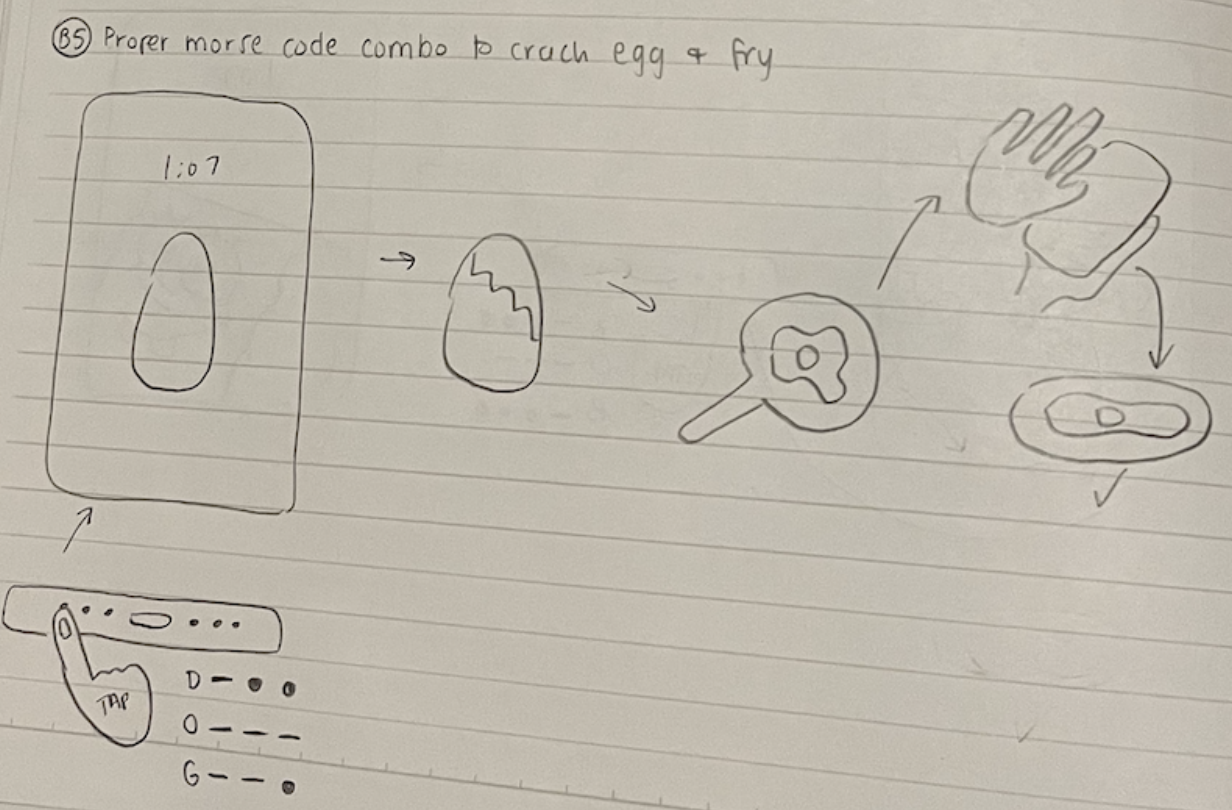 B5 Proper morse code combo to crack egg & fry
1:07
TAP
D — • •
O — — —
G — — •